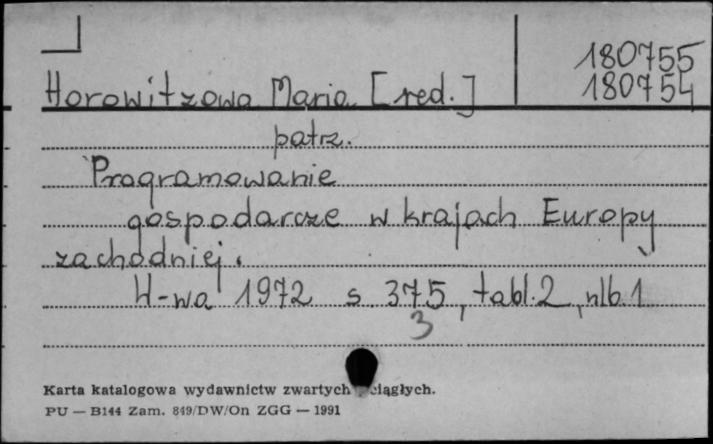 180755
Horowitzowa Maria [red.] 180754
patrz.
Programowanie
gospodarcze w krajach Europy
zachodniej.
W-wa 1972 s. 375, tabl. 2, nlb. 1
3
Karta katalogowa wydawnictw zwartych ciągłych.
PU — B144 Zam. 849/DW/On ZGG — 1991